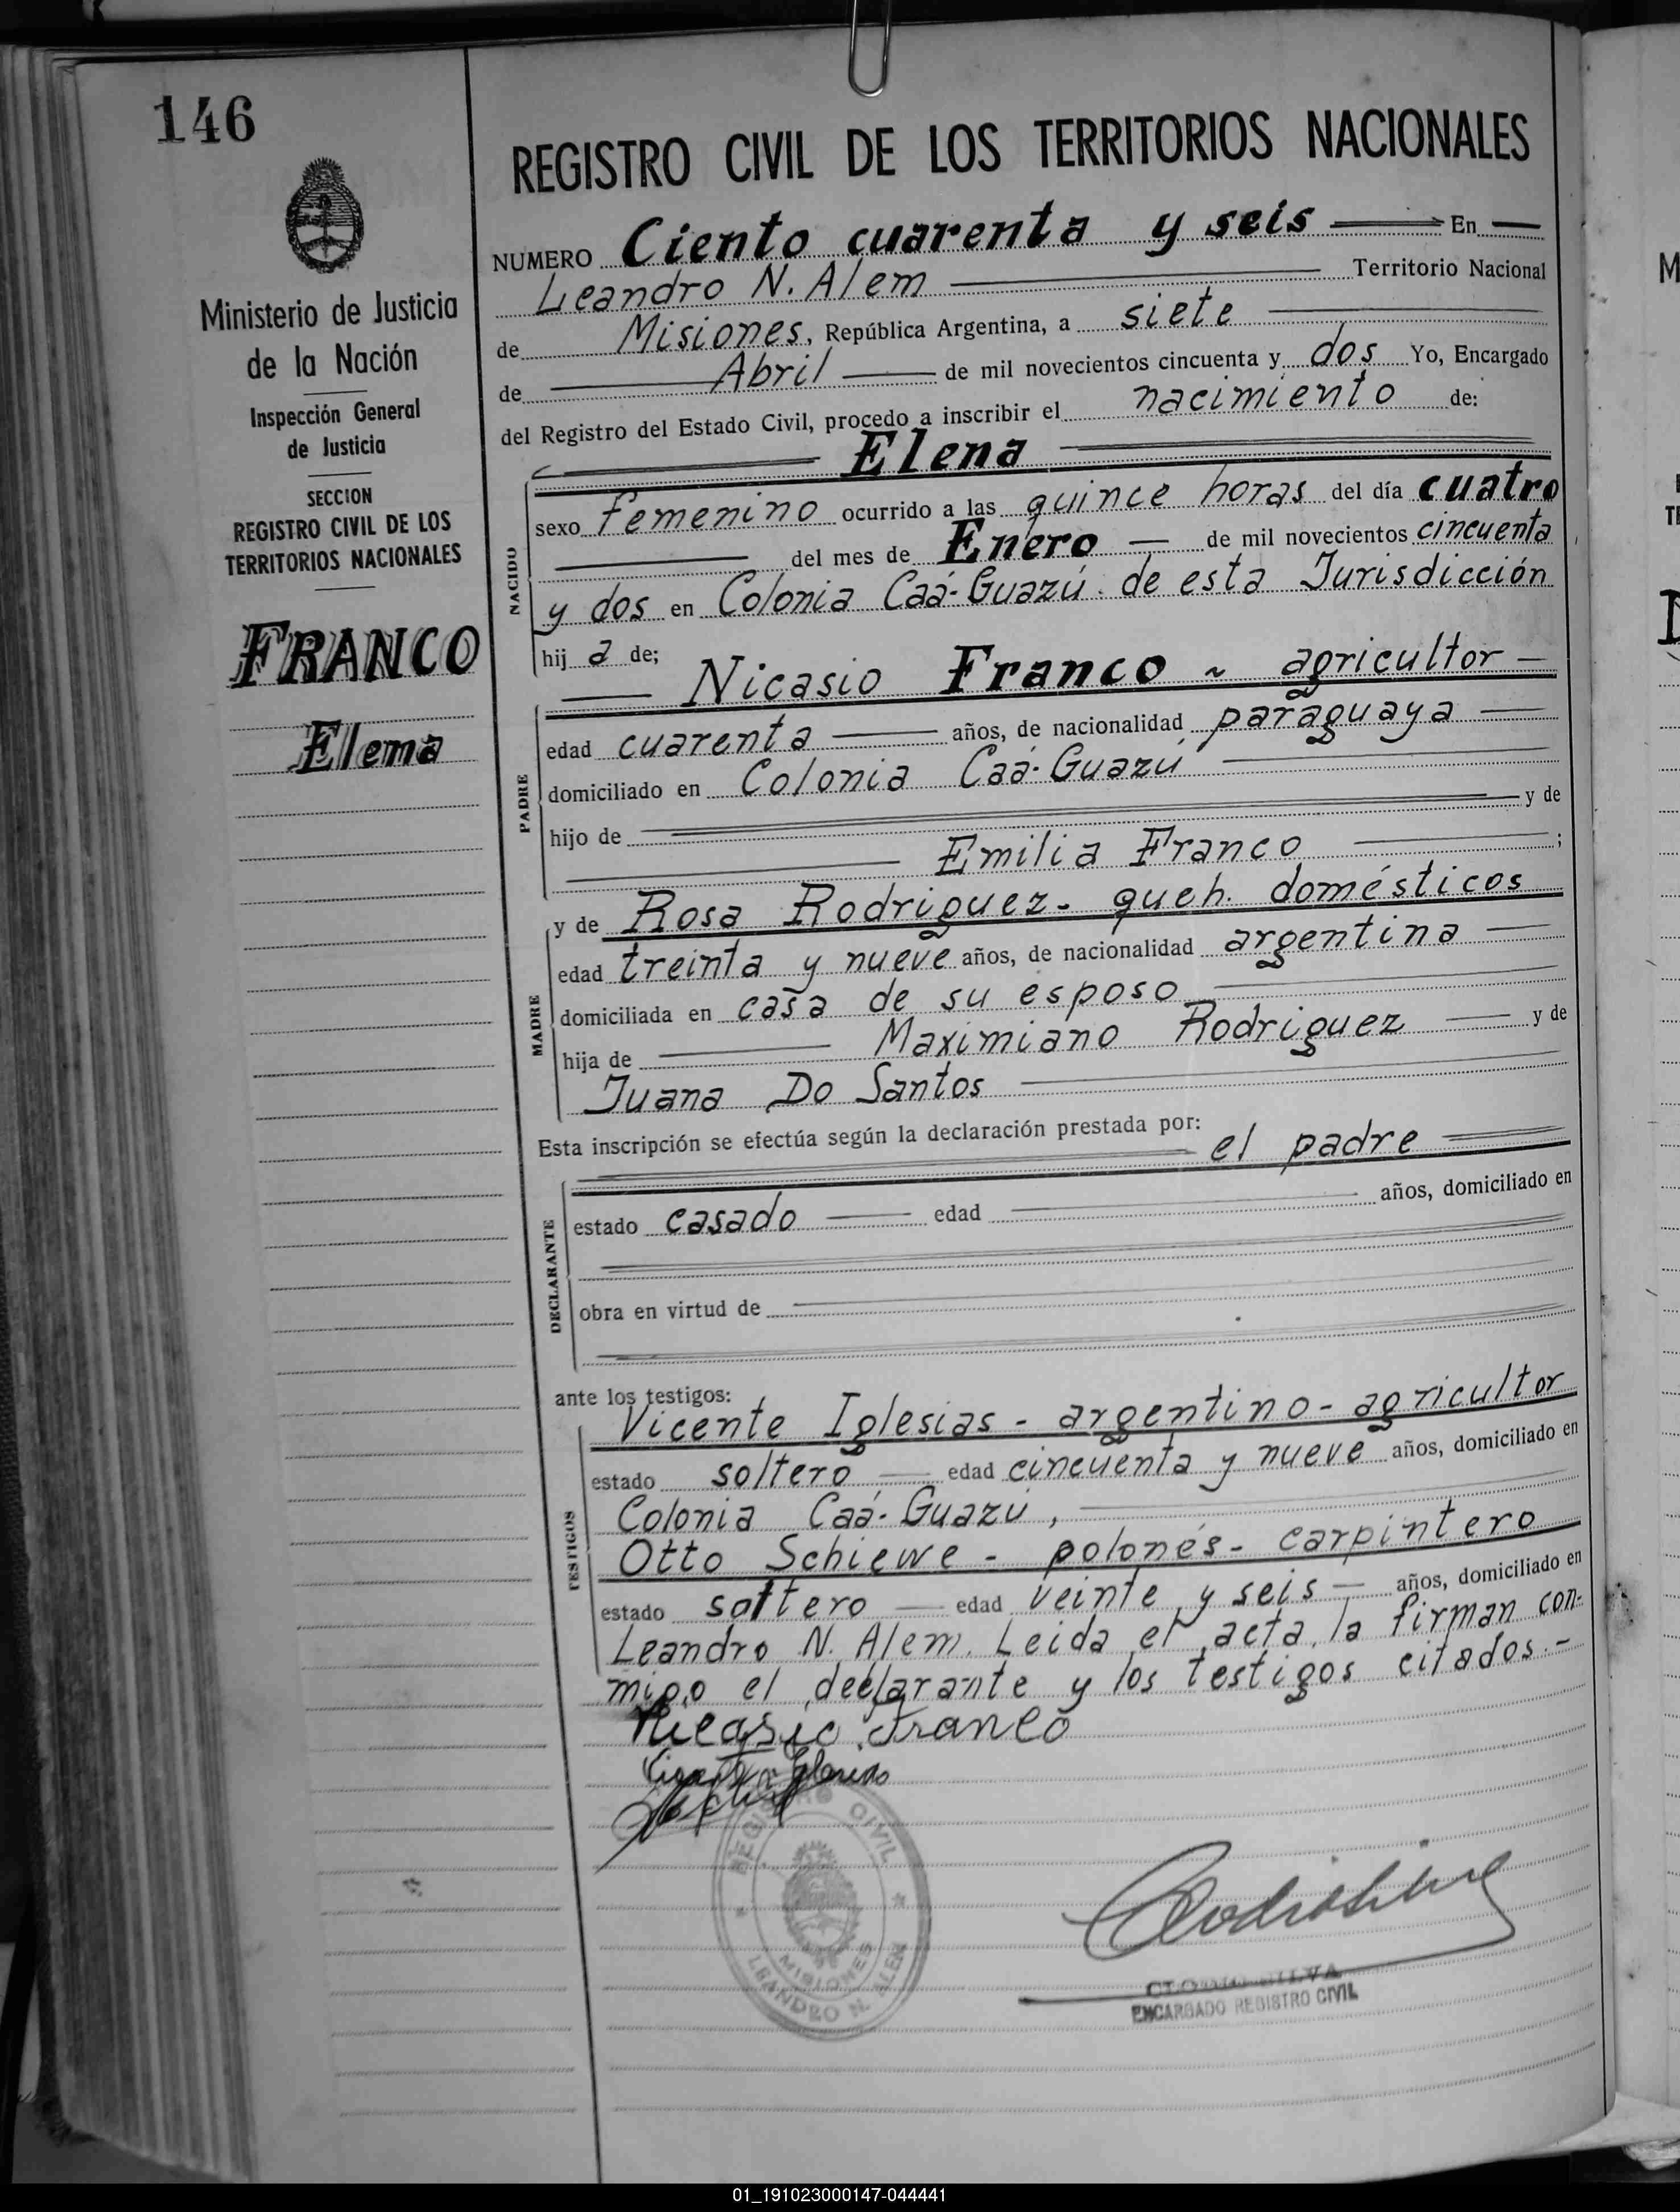 146
Ministerio de Justicia
de la Nación
Inspección General
de Justicia
SECCION
REGISTRO CIVIL DE LOS
TERRITORIOS NACIONALES
FRANCO
Elema
REGISTRO CIVIL DE LOS TERRITORIOS NACIONALES
NUMERO Ciento cuarenta y seis En
Leandro N. Alem Territorio Nacional
de Misiones, República Argentina, a siete
de Abril de mil novecientos cincuenta y dos Yo, Encargado
del Registro del Estado Civil, procedo a inscribir el nacimiento de:
Elena
NACIDO
sexo femenino ocurrido a las quince horas del día cuatro
del mes de Enero de mil novecientos cincuenta
y dos en Colonia Caá-Guazú. de esta Jurisdicción
hij a de;
Nicasio Franco ~ agricultor
PADRE
edad cuarenta años, de nacionalidad paraguaya
domiciliado en Colonia Caá-Guazú
hijo de y de
Emilia Franco ;
y de Rosa Rodriguez - queh. domésticos
MADRE
edad treinta y nueve años, de nacionalidad argentina
domiciliada en casa de su esposo
hija de Maximiano Rodriguez y de
Juana Do Santos
Esta inscripción se efectúa según la declaración prestada por:
el padre
DECLARANTE
estado casado edad años, domiciliado en
obra en virtud de
ante los testigos:
Vicente Iglesias - argentino - agricultor
TESTIGOS
estado soltero edad cincuenta y nueve años, domiciliado en
Colonia Caá-Guazú,
Otto Schiewe - polonés - carpintero
estado soltero edad veinte y seis años, domiciliado en
Leandro N. Alem. Leida el acta, la firman con-
migo el declarante y los testigos citados.-
Nicasio Franco
REGISTRO CIVIL
MISIONES
LEANDRO N. ALEM
SILVA
ENCARGADO REGISTRO CIVIL
01_191023000147-044441